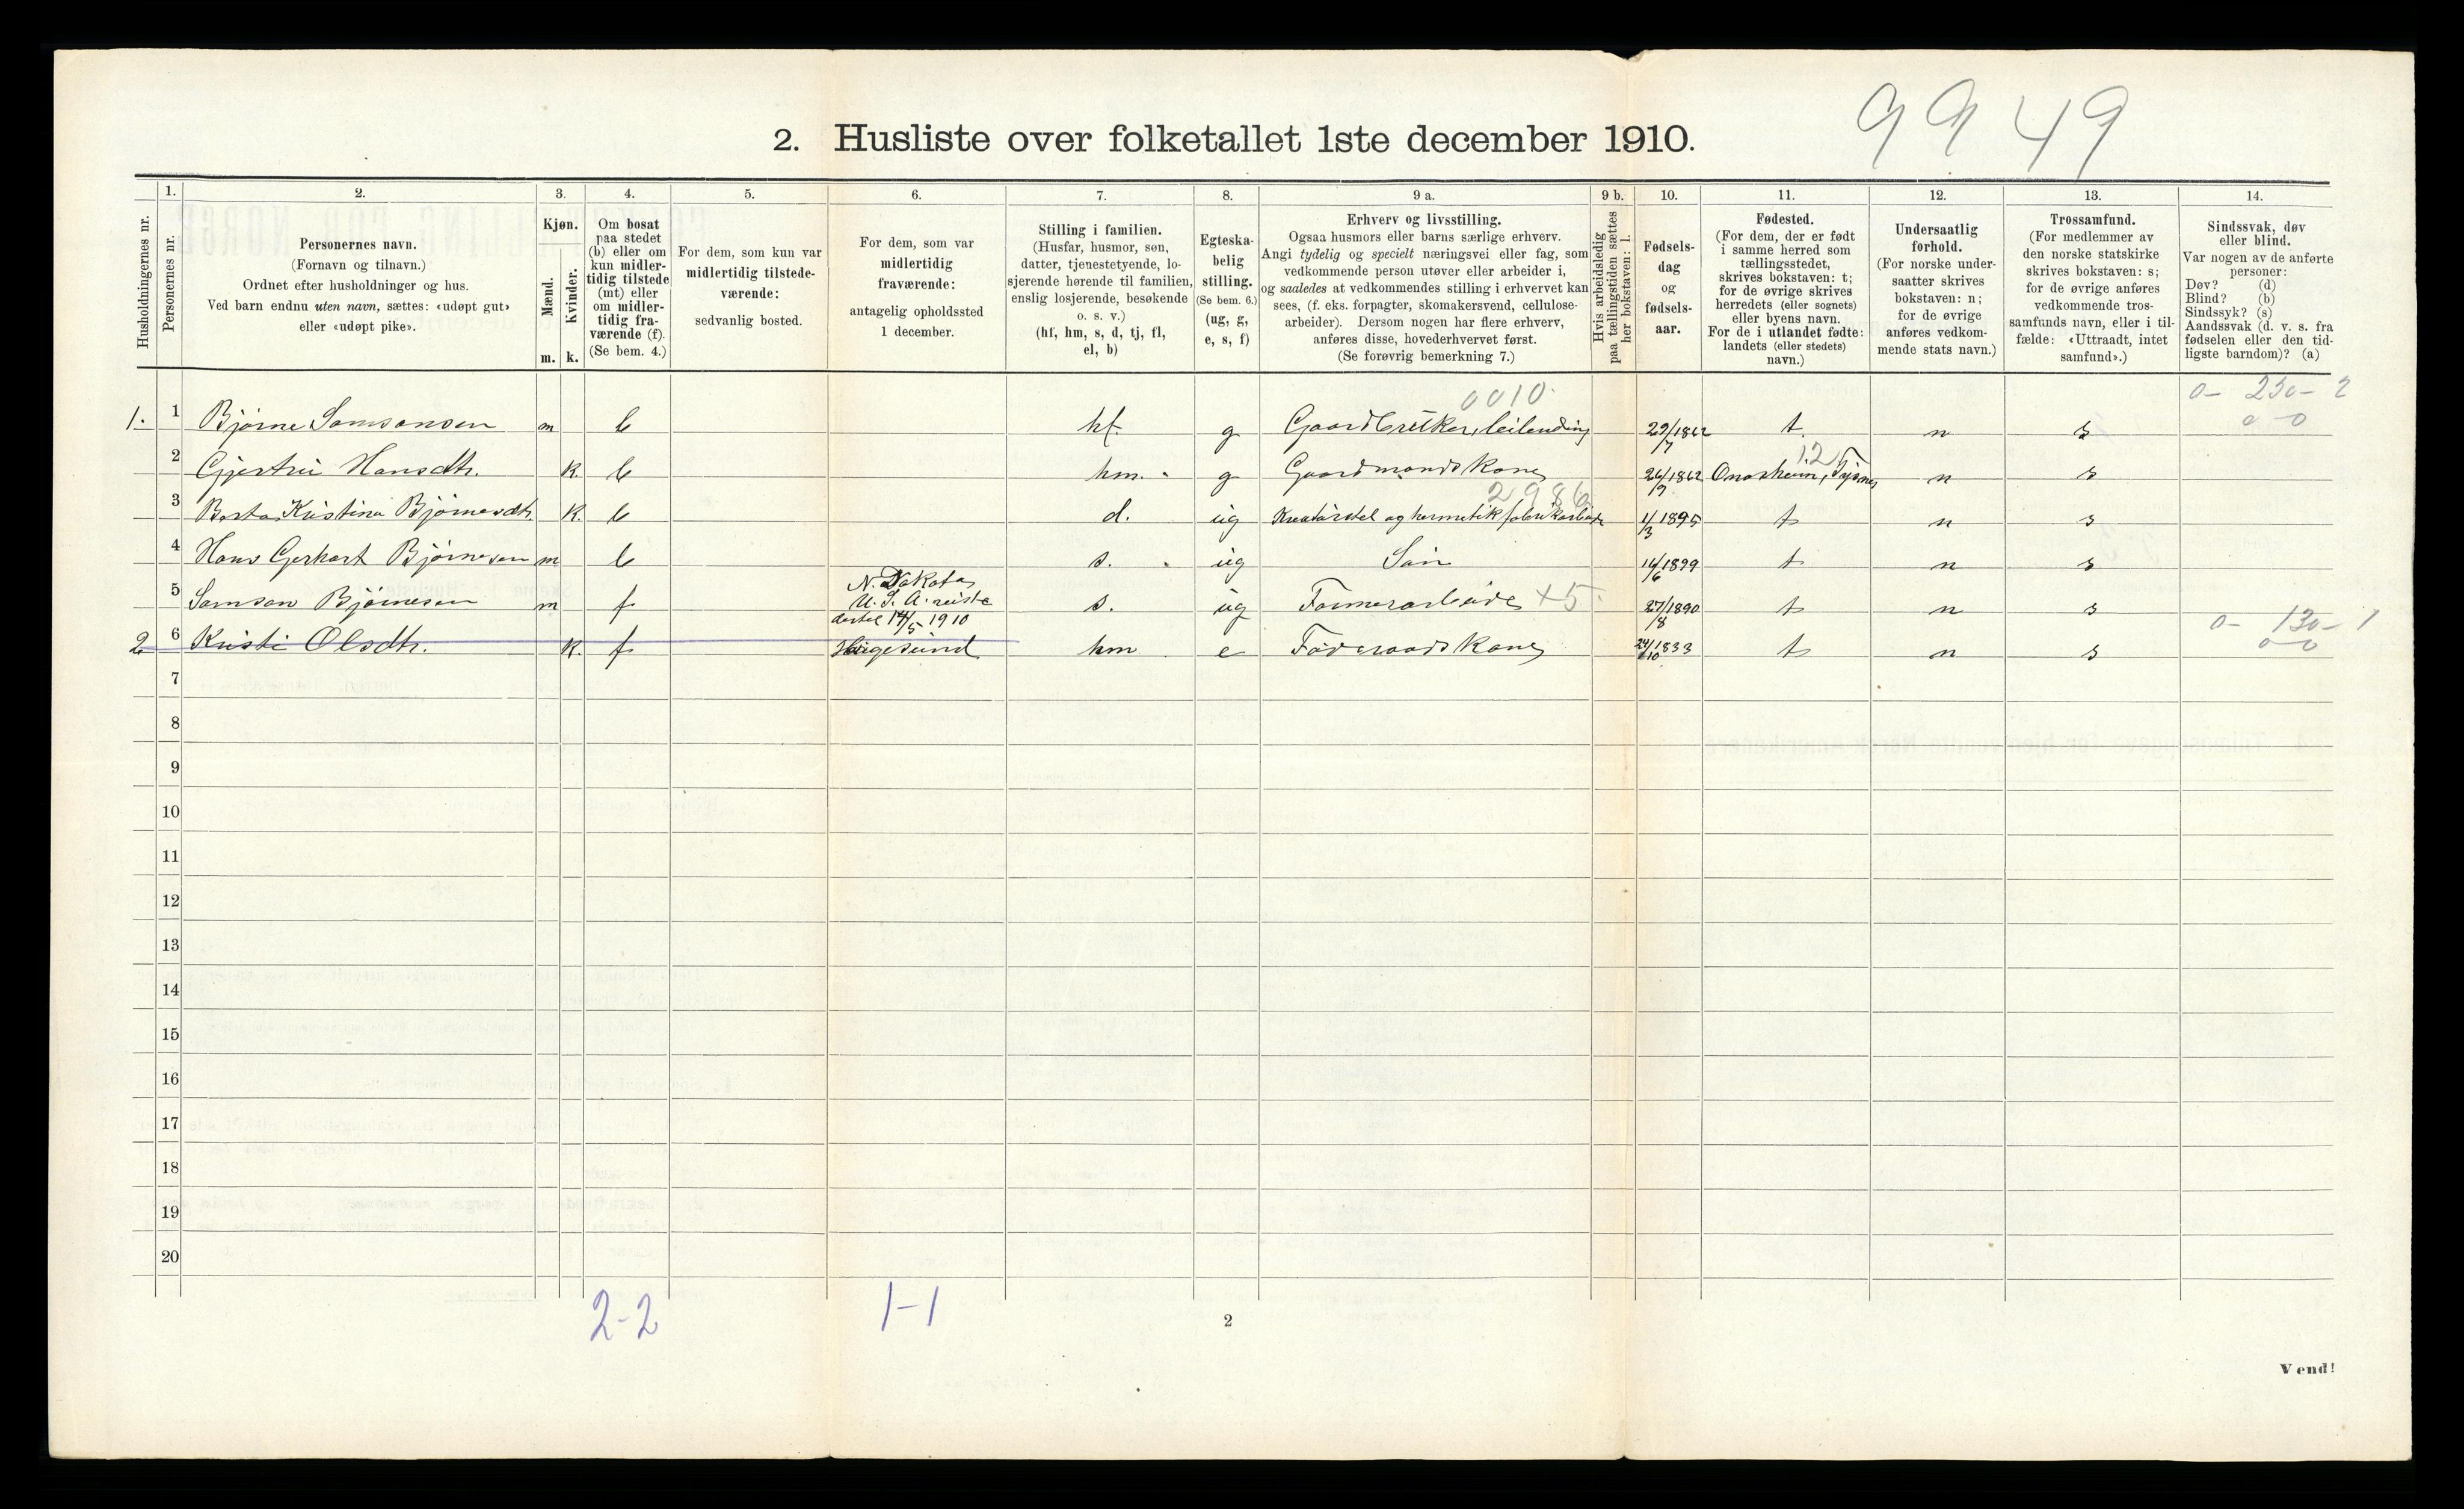 9 9 49
2. Husliste over folketallet 1ste december 1910.
Husholdningernes nr.
1.
Personernes nr.
2.
Personernes navn.
(Fornavn og tilnavn.)
Ordnet efter husholdninger og hus.
Ved barn endnu uten navn, sættes: «udøpt gut»
eller «udøpt pike».
3.
Kjøn.
Mænd.
Kvinder.
m. k.
4.
Om bosat
paa stedet
(b) eller om
kun midler-
tidig tilstede
(mt) eller
om midler-
tidig fra-
værende (f).
(Se bem. 4.)
5.
For dem, som kun var
midlertidig tilstede-
værende:
sedvanlig bosted.
6.
For dem, som var
midlertidig
fraværende:
antagelig opholdssted
1 december.
7.
Stilling i familien.
(Husfar, husmor, søn,
datter, tjenestetyende, lo-
sjerende hørende til familien,
enslig losjerende, besøkende
o. s. v.)
(hf, hm, s, d, tj, fl,
el, b)
8.
Egteska-
belig
stilling.
(Se bem. 6.)
(ug, g,
e, s, f)
9 a.
Erhverv og livsstilling.
Ogsaa husmors eller barns særlige erhverv.
Angi tydelig og specielt næringsvei eller fag, som
vedkommende person utøver eller arbeider i,
og saaledes at vedkommendes stilling i erhvervet kan
sees, (f. eks. forpagter, skomakersvend, cellulose-
arbeider). Dersom nogen har flere erhverv,
anføres disse, hovederhvervet først.
(Se forøvrig bemerkning 7.)
9 b.
Hvis arbeidsledig
paa tællingstiden sættes
her bokstaven: l.
10.
Fødsels-
dag
og
fødsels-
aar.
11.
Fødested.
(For dem, der er født
i samme herred som
tællingsstedet,
skrives bokstaven: t;
for de øvrige skrives
herredets (eller sognets)
eller byens navn.
For de i utlandet fødte:
landets (eller stedets)
navn.)
12.
Undersaatlig
forhold.
(For norske under-
saatter skrives
bokstaven: n;
for de øvrige
anføres vedkom-
mende stats navn.)
13.
Trossamfund.
(For medlemmer av
den norske statskirke
skrives bokstaven: s;
for de øvrige anføres
vedkommende tros-
samfunds navn, eller i til-
fælde: «Uttraadt, intet
samfund».)
14.
Sindssvak, døv
eller blind.
Var nogen av de anførte
personer:
Døv? (d)
Blind? (b)
Sindssyk? (s)
Aandssvak (d. v. s. fra
fødselen eller den tid-
ligste barndom)? (a)
0010
0- 230- 2
0-0
1. 1 Bjørne Samsonsen m b hf. g Gaardbruker, leilending 29/7 1862 t. n s
12
2 Gjertrui Hansdtr. k. b hm. g Gaardmands Kone 26/9 1862 Onarheim, Tysnes n s
2986
3 Berta Kristina Bjørnesdtr. k. b d. ug Kreaturstel og hermetikfabrikarbeide 1/3 1895 t n s
4 Hans Gerhart Bjørnesen m b s. ug Søn 16/6 1899 t n s
N. Dakota
U. S. A. reiste
dertil 14/5 1910
5 Samson Bjørnesen m f s. ug Farmerarbeide +5 27/8 1890 t n s
0- 130- 1
0-0
2 6 Kristi Olsdtr. k. f Haugesund hm e Føderaads Kone 24/10 1833 t n s
7
8
9
10
11
12
13
14
15
16
17
18
19
20
2-2 1-1
2
Vend!